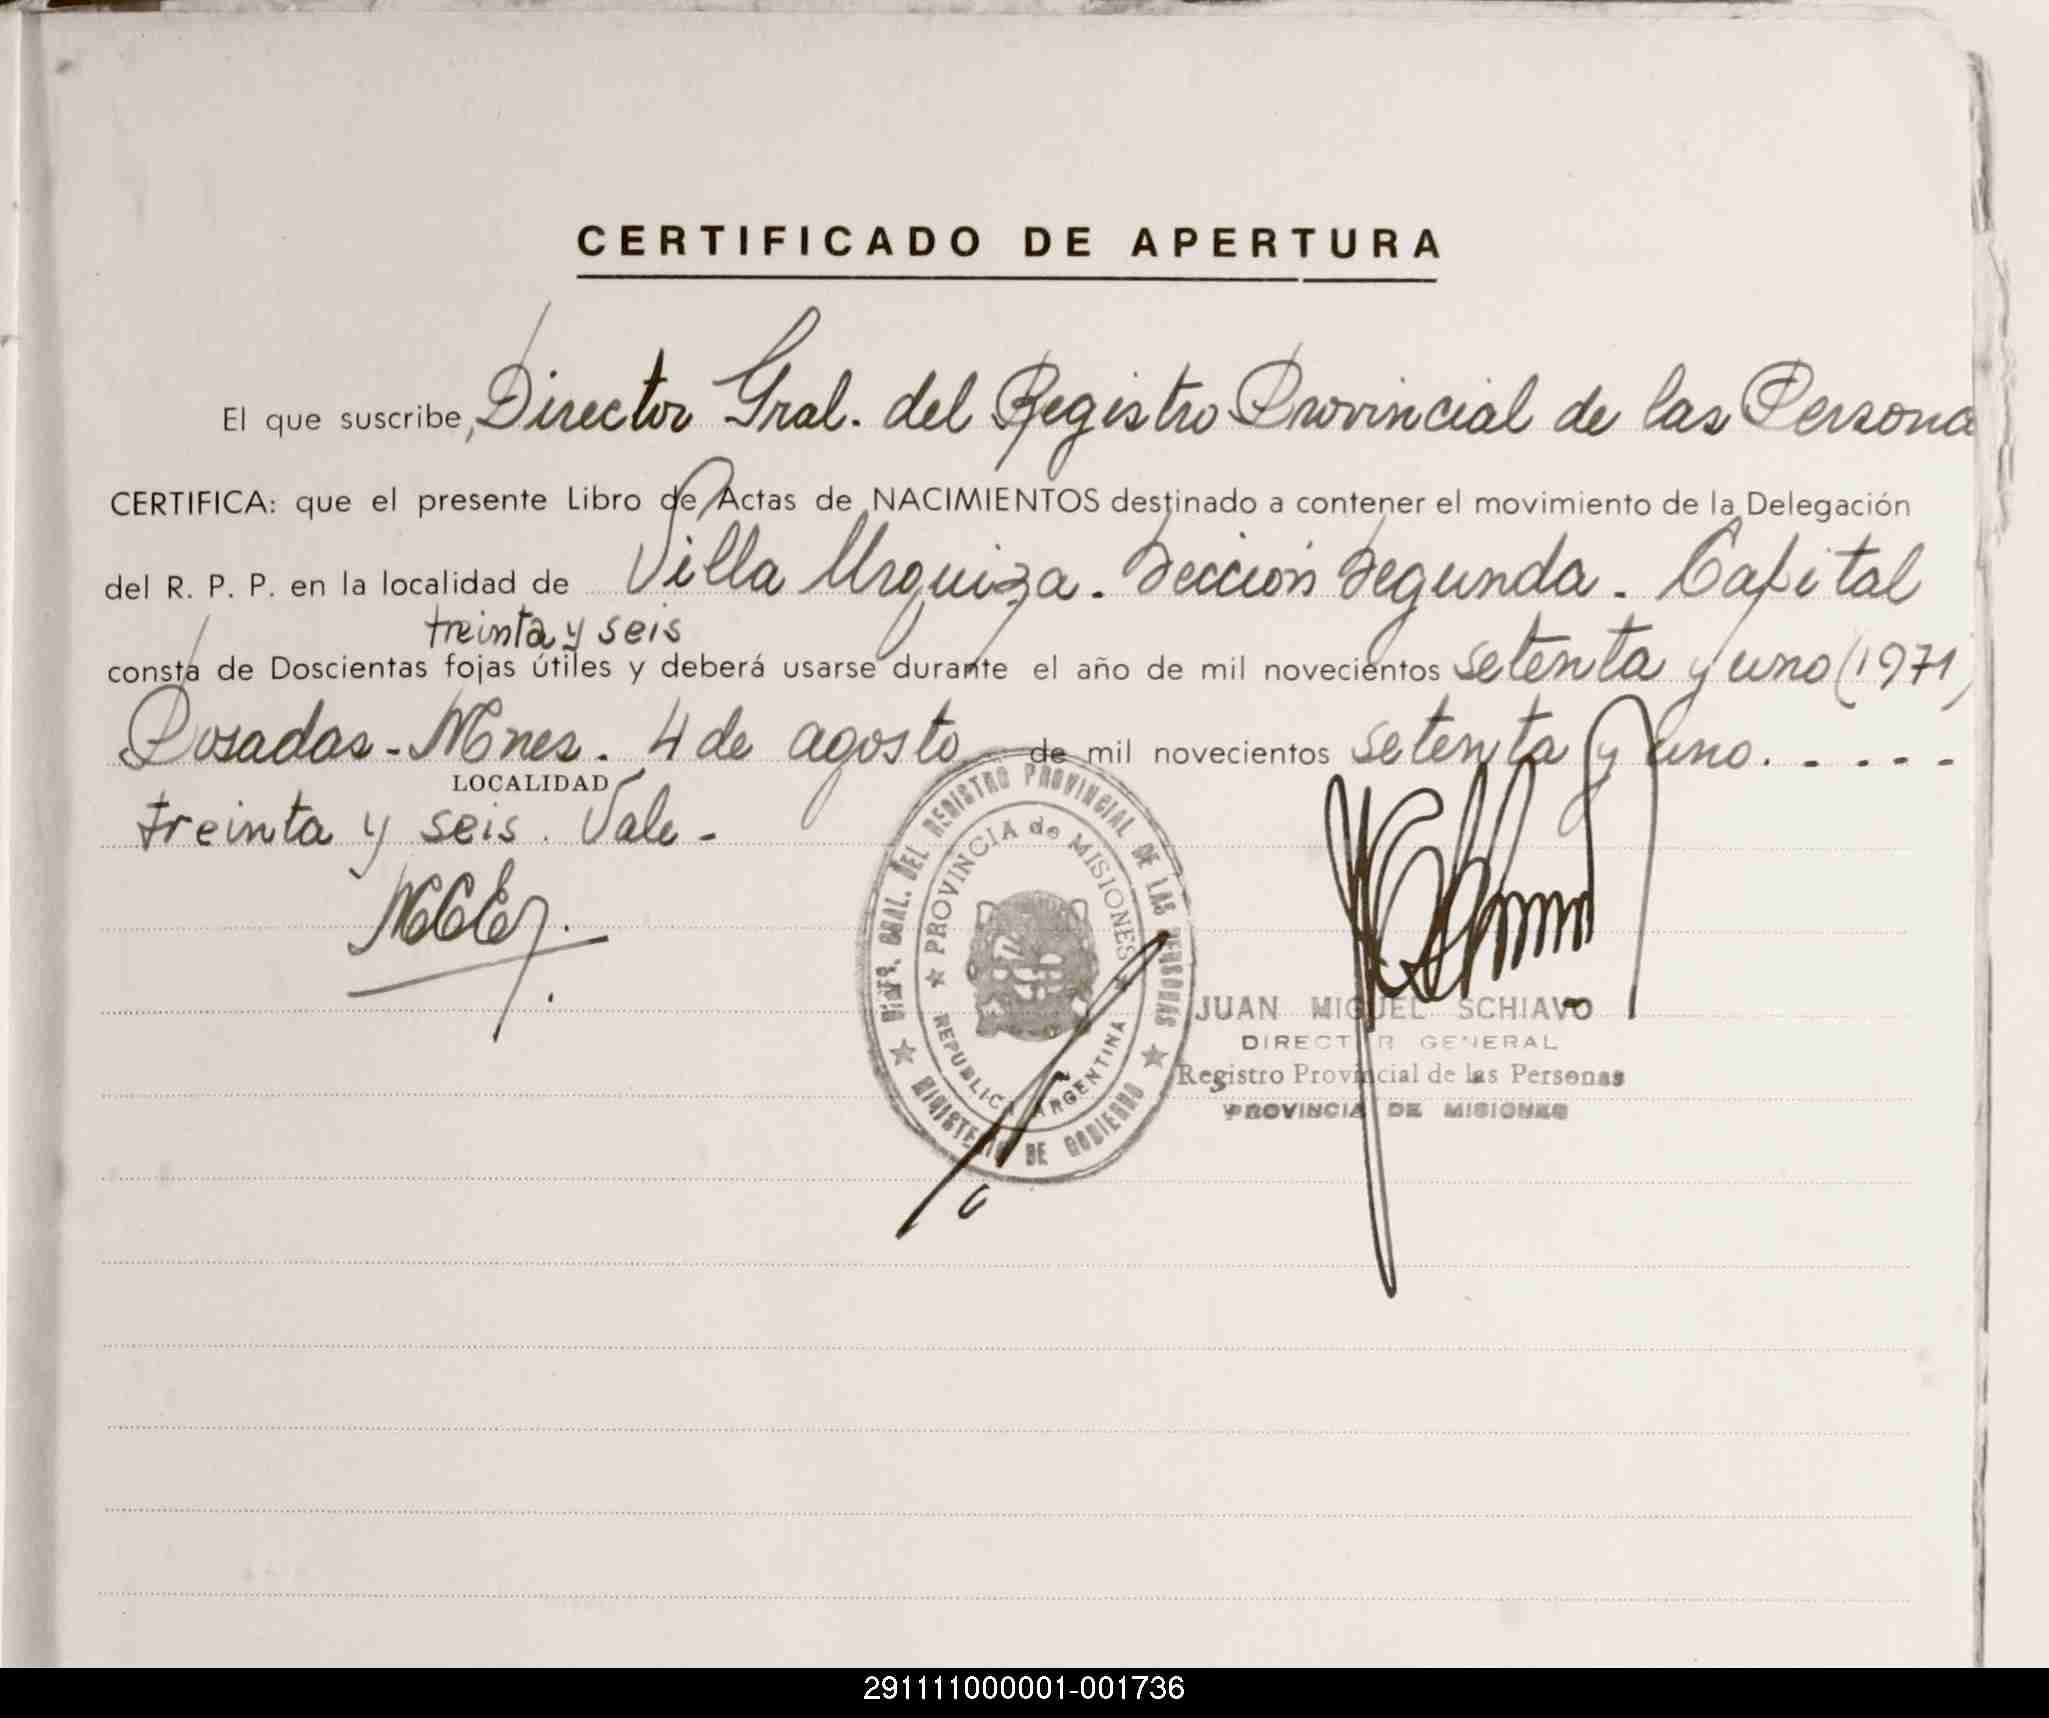 CERTIFICADO DE APERTURA
El que suscribe, Director Gral. del Registro Provincial de las Persona
CERTIFICA: que el presente Libro de Actas de NACIMIENTOS destinado a contener el movimiento de la Delegación
del R. P. P. en la localidad de Villa Urquiza. Sección Segunda. Capital
treinta y seis
consta de Doscientas fojas útiles y deberá usarse durante el año de mil novecientos setenta y uno (1971)
Posadas - Mnes. 4 de agosto de mil novecientos setenta y uno. - - - -
LOCALIDAD
treinta y seis. Vale -
DIREC. GRAL. DEL REGISTRO PROVINCIAL DE LAS PERSONAS
PROVINCIA de MISIONES
REPUBLICA ARGENTINA
MINISTERIO DE GOBIERNO
JUAN MIGUEL SCHIAVO
DIRECTOR GENERAL
Registro Provincial de las Personas
PROVINCIA DE MISIONES
291111000001-001736